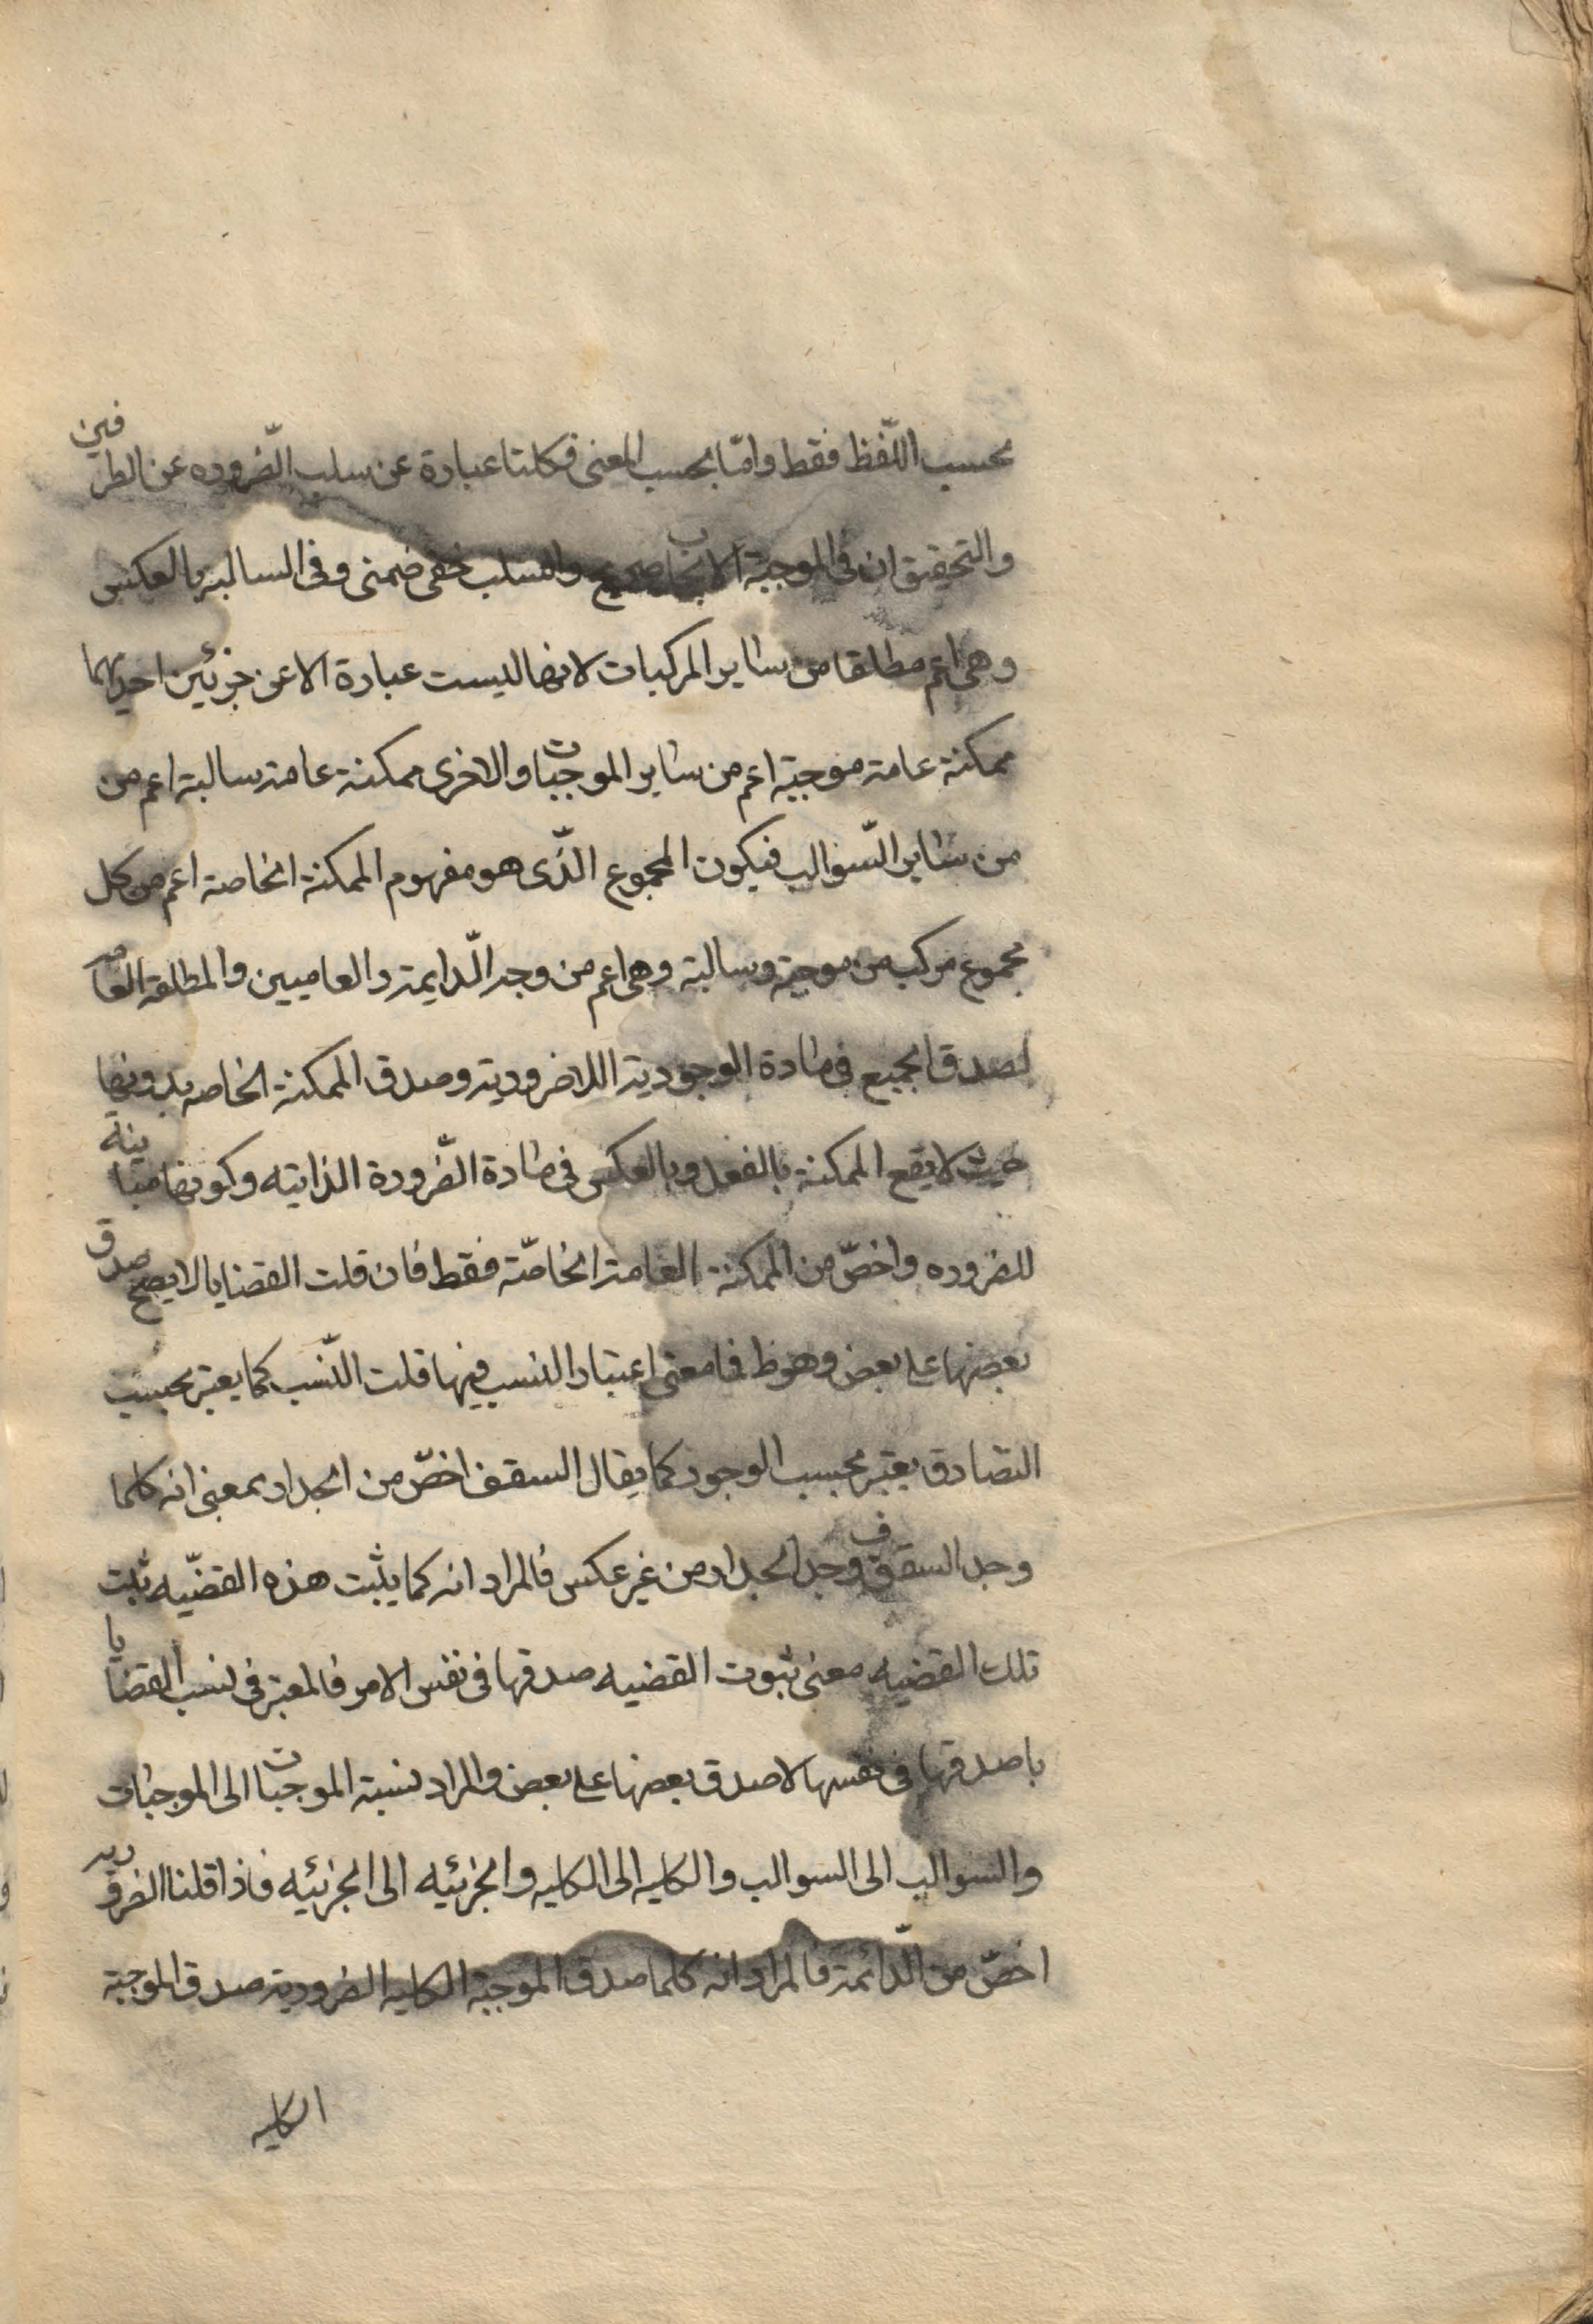 بحسب اللّفظ فقط وامّا بحسب المعنى فكلتا عبارة عن سلب الضّروره عن الطرفين
والتحقيق ان فى الموجبة الايجاب صريح والسلب خفى ضمنى وفى السالبه بالعكس
وهى اعم مطلقا من ساير المركبات لانها ليست عبارة الا عن جزئين احديهما
ممكنة عامة موجبة اعم من ساير الموجبات والاخرى ممكنة عامة سالبة اعم من
من ساير السّوالب فيكون المجموع الذّى هو مفهوم الممكنة الخاصة اعم من كل
مجموع مركب من موجبة وسالبة وهى اعم من وجه الدّايمة والعاميين والمطلقة العامه
لصدق الجميع فى مادة الوجودية اللاضرورية وصدق الممكنة الخاصه بدونها
حيث لا يقع الممكنة بالفعل وبالعكس فى مادة الضّرورة الذاتيه وكونها مباينة
للضروره واخصّ من الممكنة العامة الخاصّة فقط فان قلت القضايا لا يصح صدق
بعضها على بعض وهو ظ فما معنى اعتبار النسب فيها قلت النّسب كما يعتبر بحسب
التصادق يعتبر بحسب الوجود كما يقال السقف اخصّ من الجدار بمعنى انه كلما
وجد السقف وجد الجدار من غير عكس فالمراد انه كما يثبت هذه القضيّه ثبت
تلك القضيه معنى ثبوت القضيه صدقها فى نفس الامر فالمعتبر فى نسب القضايا
با صدقها فى نفسها لا صدق بعضها على بعض والمراد نسبة الموجبات الى الموجبات
والسوالب الى السوالب والكليه الى الكليه والجزئيه الى الجزئيه فاذا قلنا الضروريه
اخصّ من الدّائمة فالمراد انه كلما صدق الموجبة الكليه الضرورية صدق الموجبة
الكليه